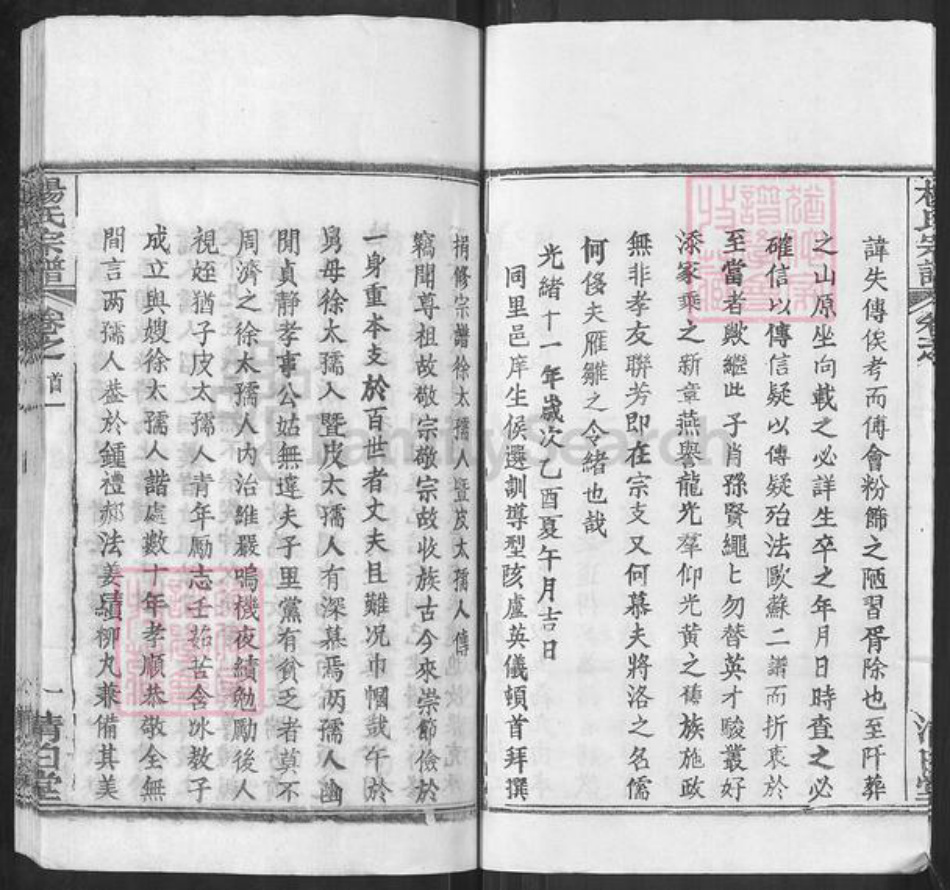 楊氏宗譜
諱失傳俟考而傅會粉飾之陋習胥除也至阡葬
之山原坐向載之必詳生卒之年月日時查之必
確信以傳信疑以傳疑殆法歐蘇二譜而折衷於
至當者歟繼此子肖孫賢繩匕勿替英才駿叢好
添家乘之新章燕譽龍光羣仰光黃之舊族施政
無非孝友聯芳即在宗支又何慕夫將洛之名儒
何俊夫雁雛之令緒也哉
光緒十一年歲次乙酉夏午月吉日
同里邑庠生侯選訓導型陔盧英儀頓首拜撰
捐修宗譜徐太孺人暨皮太孺人傳
竊聞尊祖故敬宗敬宗故收族古今來崇節儉於
一身重本支於百世者丈夫且難况巾幗哉午於
舅母徐太孺人暨皮太孺人有深慕焉兩孺人幽
閒貞靜孝事公姑無違夫子里黨有貧乏者莫不
周濟之徐太孺人內治維嚴鳴機夜績勉勵後人
視姪猶子皮太孺人青年勵志壬茹苦含冰教子
成立與嫂徐太孺人諧處數十年孝順恭敬全無
間言两孺人葢於鍾禮郝法姜績栁九兼備其美
楊氏宗譜
卷之一
首
一
清白堂
FamilySearch